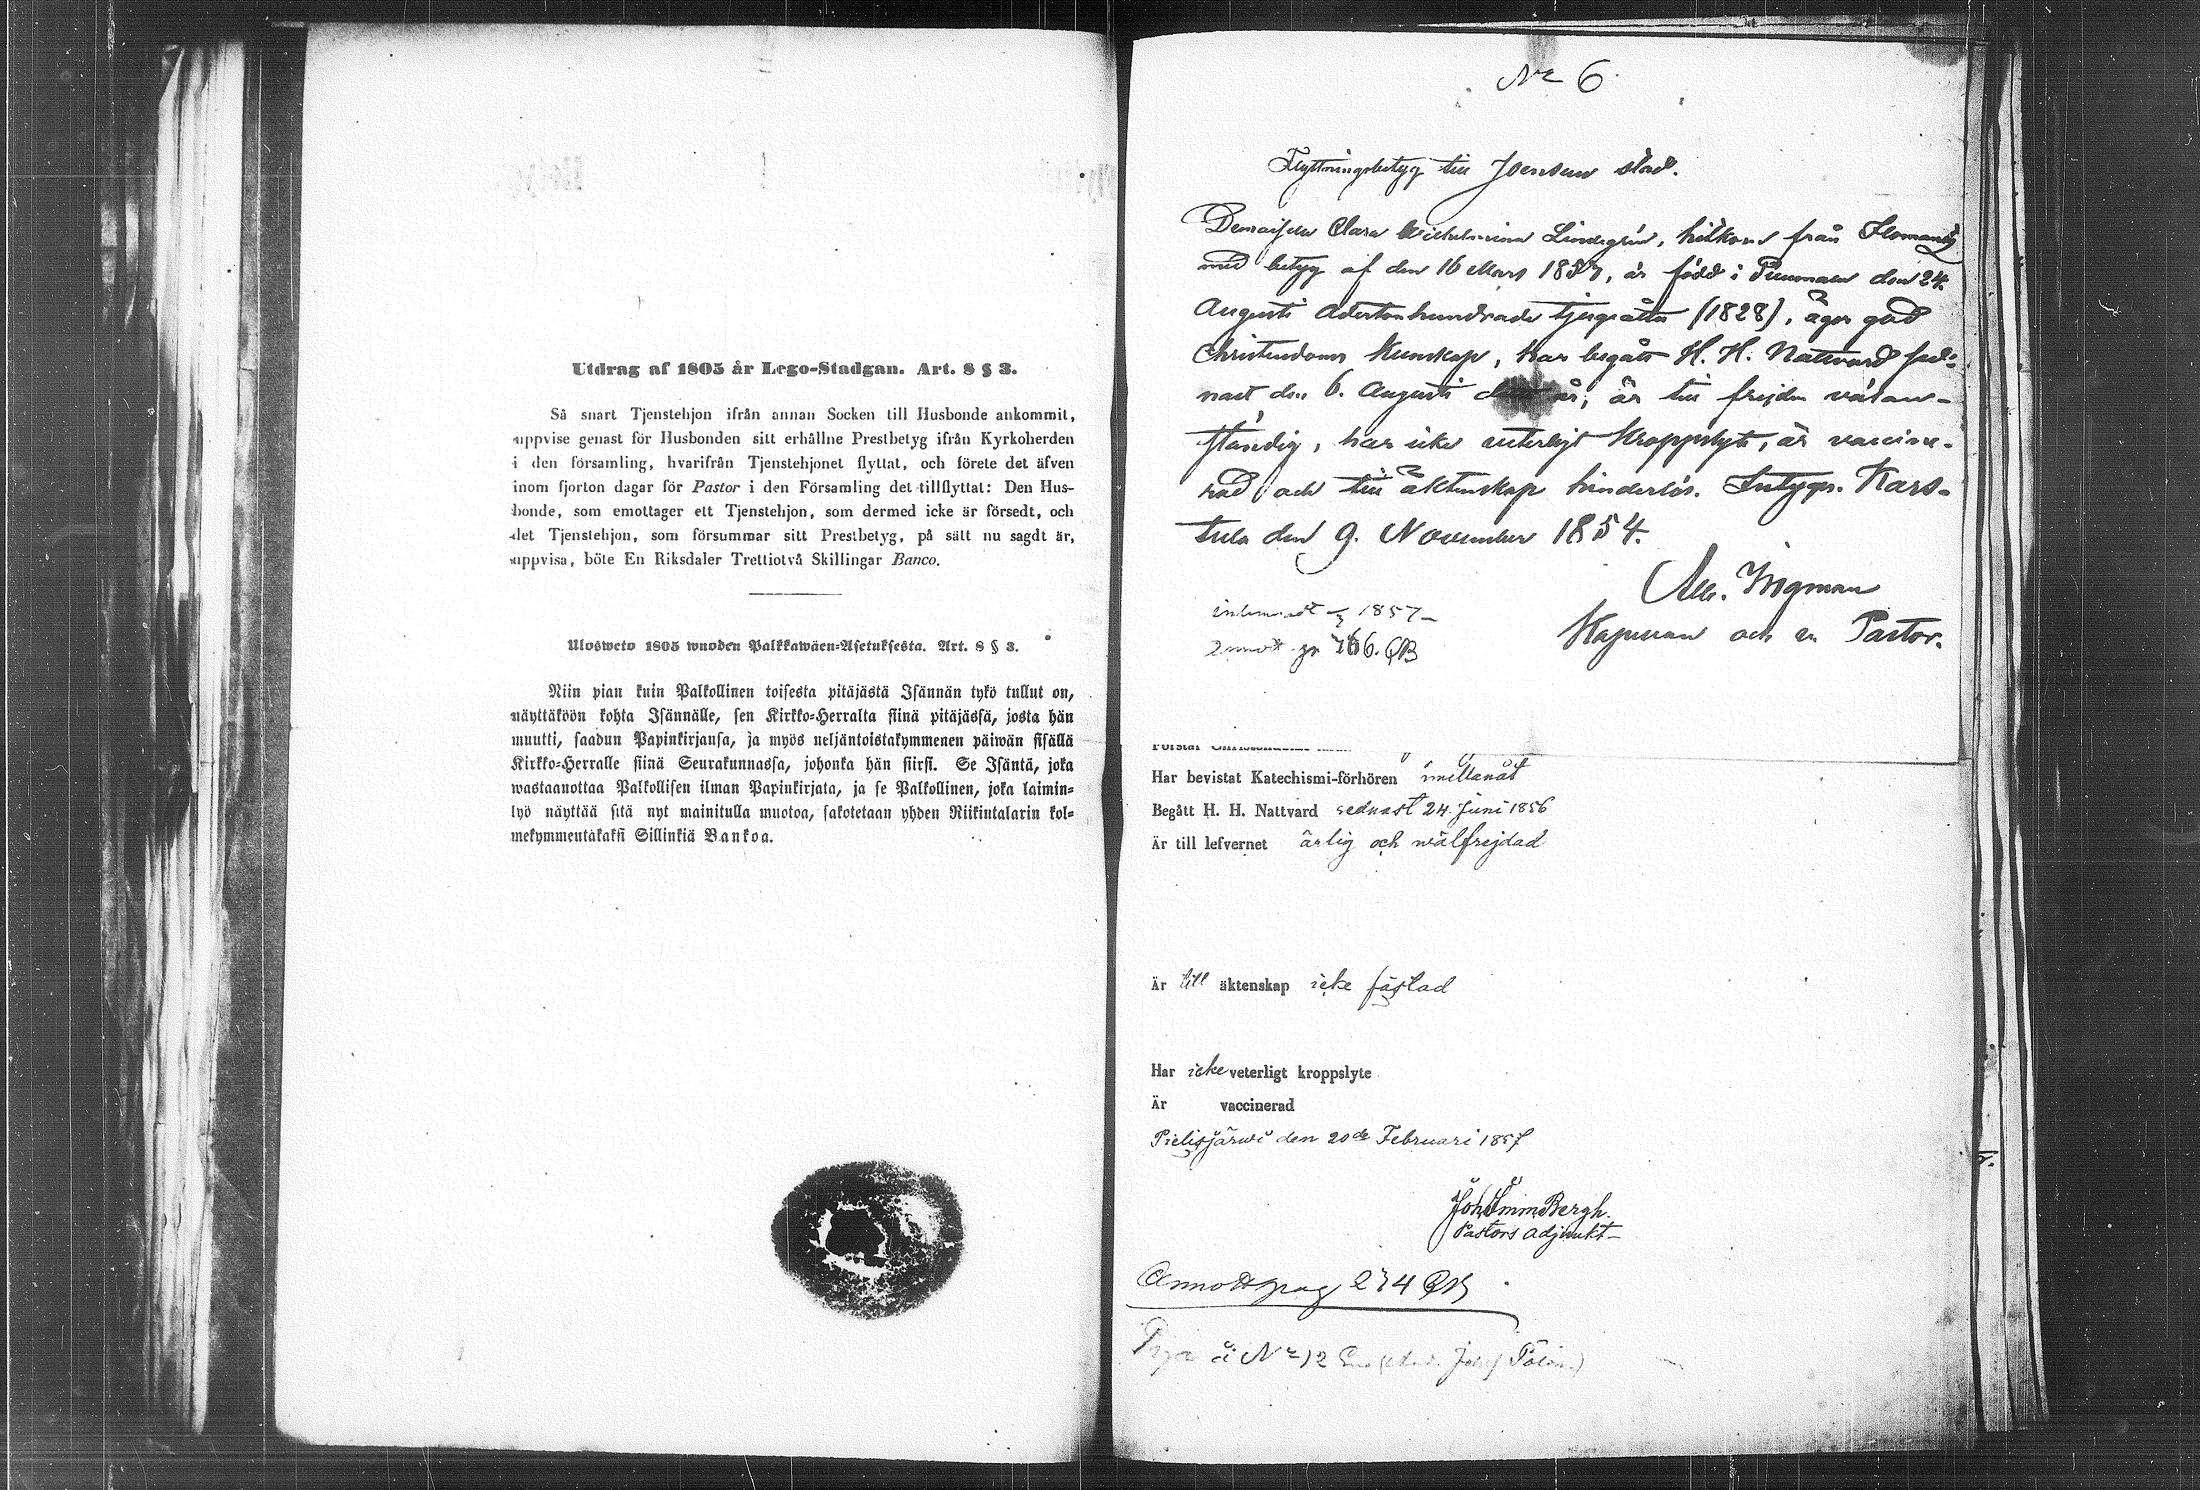 Utdrag af 1805 år Lego-Stadgan. Art. 8 § 3.
Så snart Tjenstehjon ifrån annan Socken till Husbonde ankommit,
uppvise genast för Husbonden sitt erhållne Prestbetyg ifrån Kyrkoherden
i den församling, hvarifrån Tjenstehjonet flyttat, och förete det äfven
inom fjorton dagar för Pastor i den Församling det tillflyttat: Den Hus-
bonde, som emottager ett Tjenstehjon, som dermed icke är försedt, och
det Tjenstehjon, som försummar sitt Prestbetyg, på sätt nu sagdt är,
uppvisa, böte En Riksdaler Trettiotvå Skillingar Banco.
Ulosweto 1805 wuoden Palkkawäen-Asetuksesta. Art. 8 § 3.
Niin pian kuin Palkollinen toisesta pitäjästä Isännän tykö tullut on,
näyttäköön kohta Isännälle, sen Kirkko-Herralta siinä pitäjässä, josta hän
muutti, saadun Papinkirjansa, ja myös neljäntoistakymmenen päiwän sisällä
Kirkko-Herralle siinä Seurakunnassa, johonka hän siirsi. Se Isäntä, joka
wastaanottaa Palkollisen ilman Papinkirjata, ja se Palkollinen, joka laimin-
lyö näyttää sitä nyt mainitulla muotoa, sakotetaan yhden Riikintalarin kol-
mekymmentäkaksi Sillinkiä Bankoa.
No 6.
Flyttningsbetyg till Joensuu stad.
Clara Wilhelmina Lindegrén, hitkom från Ilomants
med betyg af den 16 Mars 1857, är född i den 24
Augusti Adertonhundrade tjuguåtta (1828), äger god
Christendoms kunskap, har begått H. H. Nattvard sed-
nast den 6. Augusti år, är till frejden välan-
ständig, har icke veterligt kroppslyte, är vaccine-
rad och till äktenskap hinderlös. Intygar. Kars-
tula den 9. November 1854.
Alb. Ingman
Kapellan och v. Pastor.
1857
766.
Har bevistat Katechismi-förhören emellanåt
Begått H. H. Nattvard sednast 24 Juni 1856
Är till lefvernet ärlig och wälfrejdad
Är till äktenskap icke fästad
Har icke veterligt kroppslyte
Är vaccinerad
Pielisjärwi den 20de Februari 1857
Joh. Imm. Bergh.
Pastors adjunkt
Annott pag 234
Piga å No 12